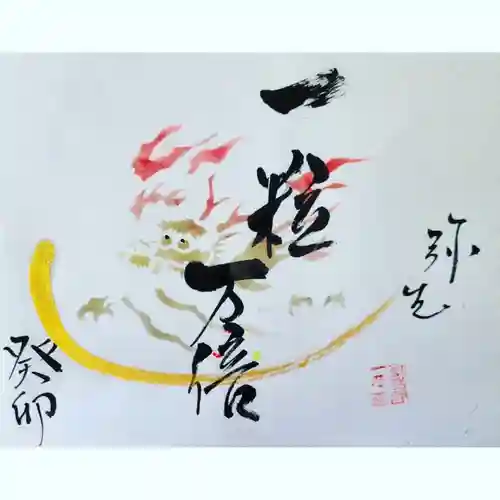 弥先
一粒
万倍
癸卯